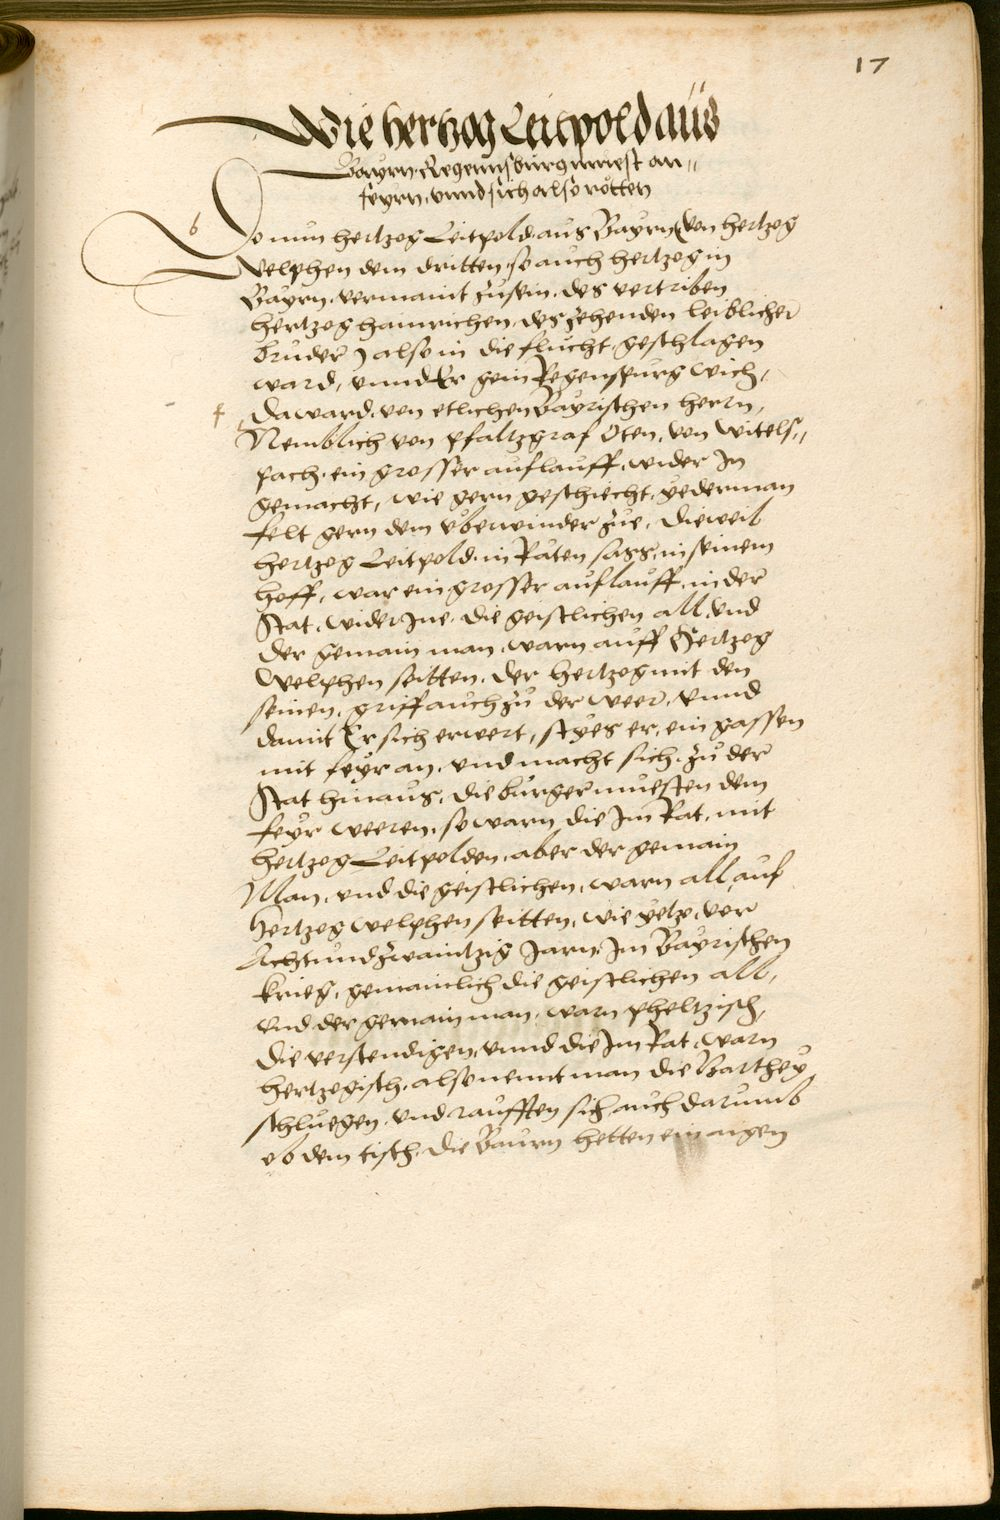 17
Wie hertzog Leitpold aus
Bayrn, Regennsburg muest an„
feyrn, vnnd sich also rotten
6
Do nun hertzog Leitpold aus Bayrn (von hertzog
Welphen dem dritten, so auch hertzog in
Bayrn, vermaint zusein, des vertriben
hertzog hainrichen, des zehenden leiblicher
bruder) also in die flucht geschlagen
ward, vnnd Er gein Regenspurg wich,
da ward, von etlichen Bayrischen herrn,
Nemblich von pfaltzgraf Oten, von Witels„
pach, ein grosser auflauff, wider In
gemacht, wie gern geschiecht, yederman
felt gern dem vberwinder zue, dieweil
hertzog Leitpold in Räten sass, in seinem
hoff, war ein grosser auflauff, in der
Stat, wider Ine, die geistlichen all, vnd
der gemain man, warn auff Hertzog
Welphen seitten, der hertzog mit den
seinen, griff auch zu der weer, vnnd
damit Er sich erwert, sties er, ein gassen
mit feyr an, vnd macht sich, zu der
Stat hinaus, die burger muesten dem
feyr weeren, so warn die Im Rat, mit
hertzog Leitpolden, aber der gemain
Man, vnd die geistlichen, warn all auf
hertzog welphen seitten, wie yetzo, vor
Achtundzwaintzig Jarn, Im Bayrischen
krieg, gemainlich die geistlichen all,
vnd der gemain man, warn pheltzisch,
die verstendigen, vnnd die Im Rat, warn
hertzogisch, also nennt man die Parthey
schluegen, vnd raufften sich auch darumb
ob dem tisch, die Baurn hetten ein aigen